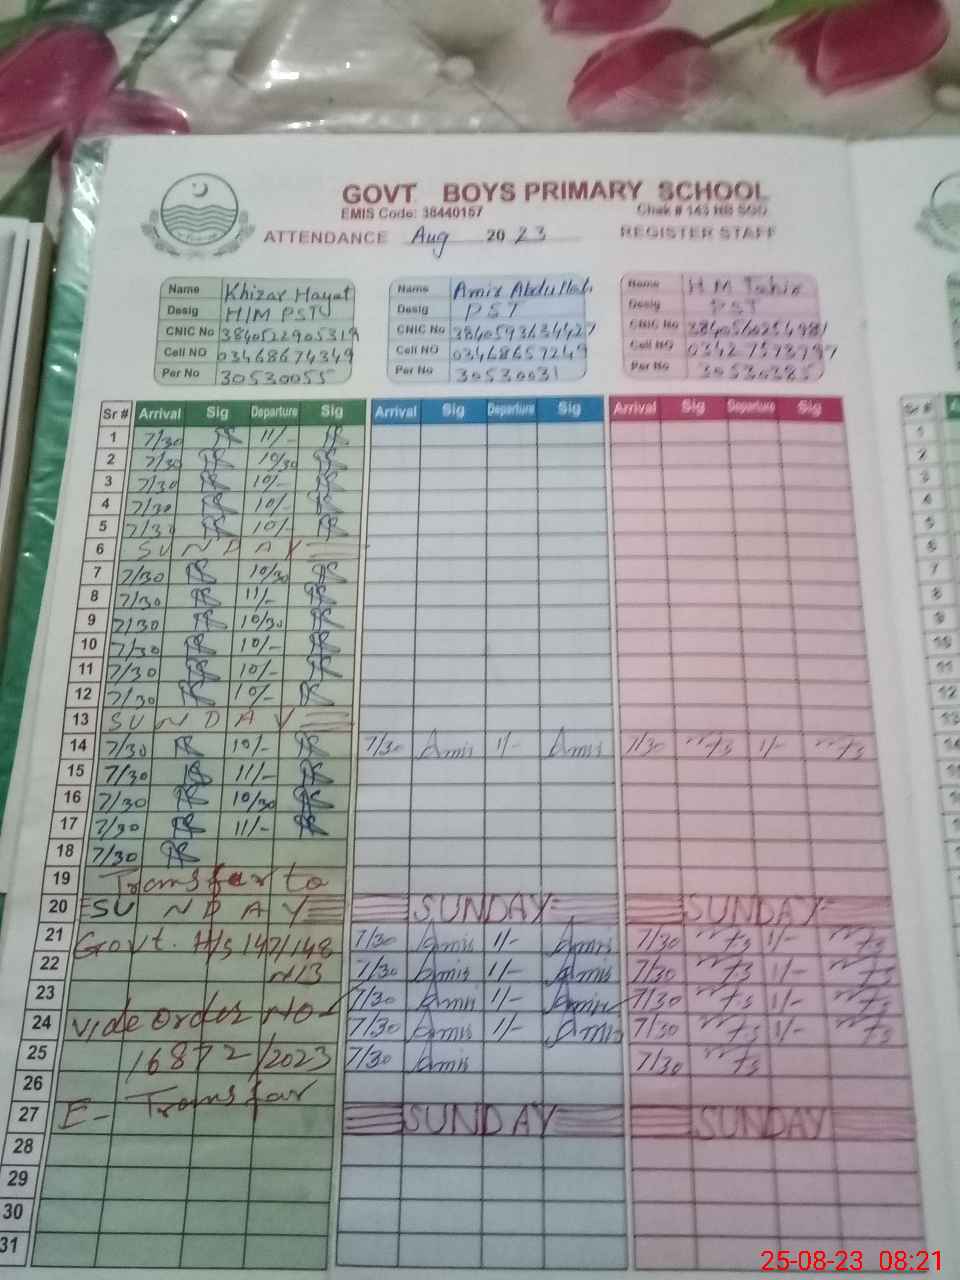 GOVT BOYS PRIMARY SCHOOL
EMIS Code: 38440157 Chak # 143 NB SGD
ATTENDANCE Aug 2023 REGISTER STAFF
Name Khizar Hayat Name Amir Abdullah Name H M Tahir
Desig H/M PSTU Desig PST Desig PST
CNIC No CNIC No 3840593634427 CNIC No
Cell NO 03468674349 Cell NO 03468657249 Cell NO 03427573797
Per No 30530055 Per No 30530031 Per No 30530385
Sr # Arrival Sig Departure Sig Arrival Sig Departure Sig Arrival Sig Departure Sig Sr #
1 7/30 11/- 1
2 7/30 10/30 2
3 7/30 10/- 3
4 7/30 10/- 4
5 7/30 10/- 5
6 SUNDAY 6
7 7/30 10/30 7
8 7/30 11/- 8
9 7/30 10/30 9
10 7/30 10/- 10
11 7/30 10/- 11
12 7/30 10/- 12
13 SUNDAY 13
14 7/30 10/- 7/30 Amir 1/- Amir 7/30 1/- 14
15 7/30 11/-
16 7/30 10/30
17 7/30 11/-
18 7/30
19 Transfar to
20 SUNDAY SUNDAY SUNDAY
21 Govt. H/S 147/148 7/30 Amir 1/- Amir 7/30 1/-
22 NB 7/30 Amir 1/- Amir 7/30 1/-
23 7/30 Amir 1/- Amir 7/30 1/-
24 vide order NO- 7/30 Amir 1/- Amir 7/30 1/-
25 16872/2023 7/30 Amir 7/30
26
27 E- Transfar SUNDAY SUNDAY
28
29
30
31
25-08-23 08:21